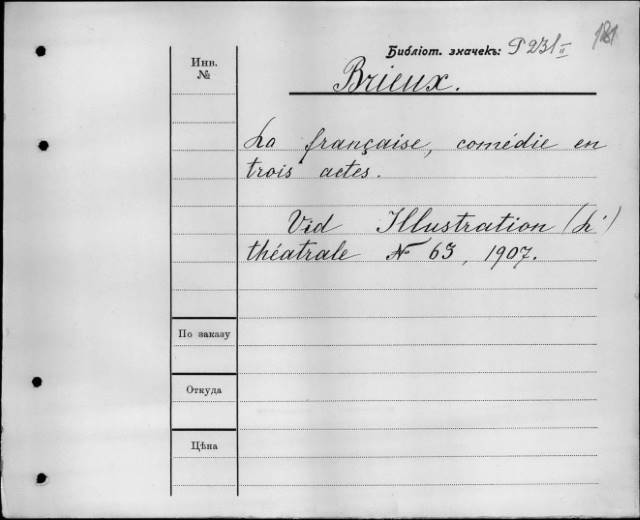 181
Библіот. значекъ: P 231 II
Инв. №
Brieux.
La française, comédie en
trois actes.
Vid Illustration (L')
théatrale № 63, 1907.
По заказу
Откуда
Цѣна